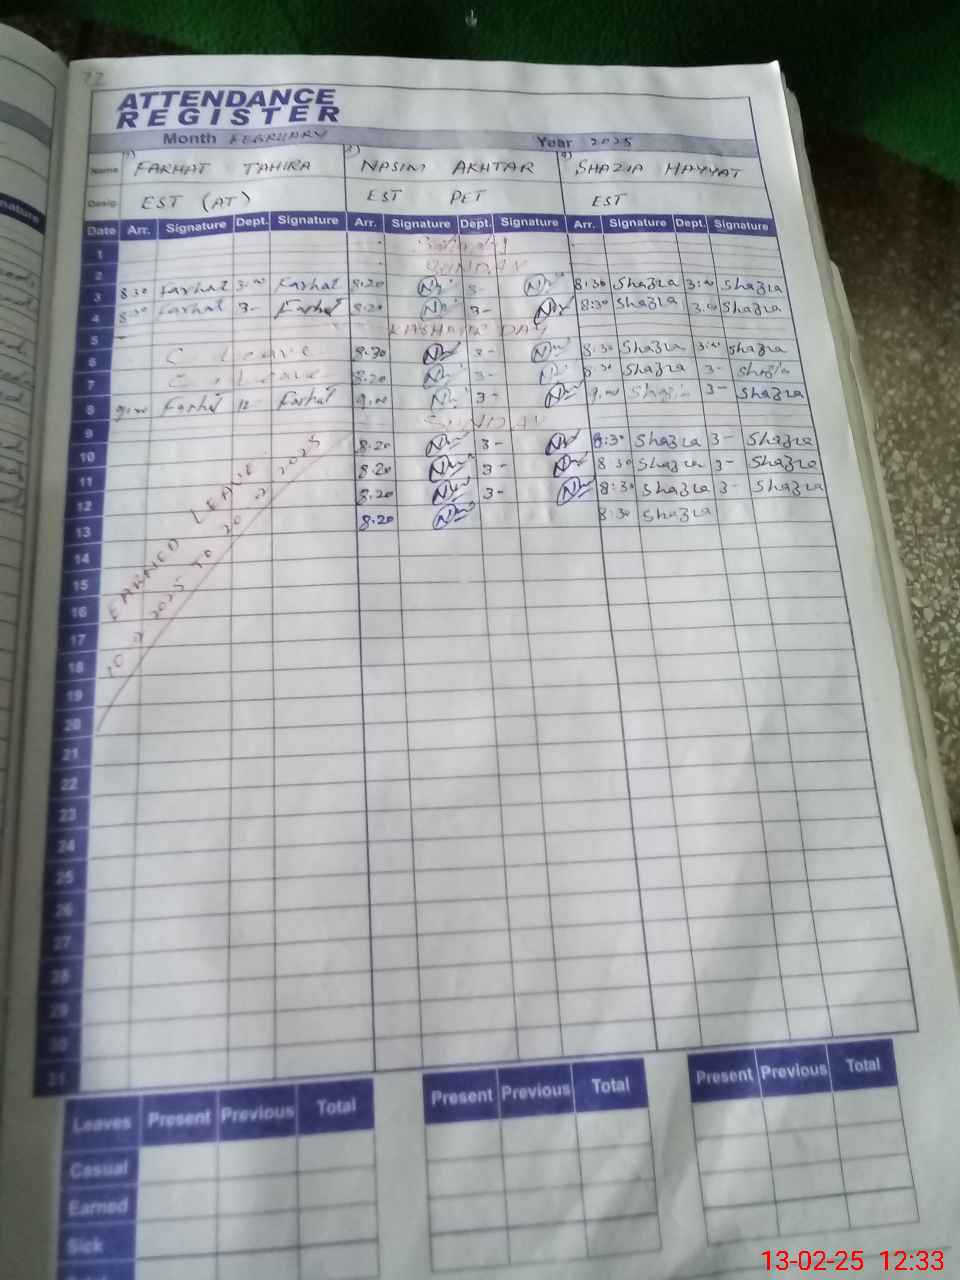 22
ATTENDANCE
REGISTER
Month FEBRUARY Year 2025
Name 1) FARHAT TAHIRA 2) NASIM AKHTAR 3) SHAZIA HAYYAT
Desig. EST (AT) EST PET EST
Date Arr. Signature Dept. Signature Arr. Signature Dept. Signature Arr. Signature Dept. Signature
1
2 SUNDAY
3 8:30 Farhat 3:00 Farhat 8:20 3- 8:30 Shazia 3:00 Shazia
4 8:30 Farhat 3- Farhat 8:20 3- 8:30 Shazia 3:00 Shazia
5 KASHMIR DAY
6 C. Leave 8:30 3- 8:30 Shazia 3:00 Shazia
7 C. Leave 8:20 3- 8:30 Shazia 3- Shazia
8 9:00 Farhat 12- Farhat 9:00 3- 9:00 Shazia 3- Shazia
9 SUNDAY
10 8:20 3- 8:30 Shazia 3- Shazia
11 8:20 3- 8:30 Shazia 3- Shazia
12 8:20 3- 8:30 Shazia 3- Shazia
13 8:20 8:30 Shazia
EARNED LEAVE
10 2 2025 TO 20 2 2025
14
15
16
17
18
19
20
21
22
23
24
25
26
27
28
29
30
31
Leaves Present Previous Total Present Previous Total Present Previous Total
Casual
Earned
Sick
13-02-25 12:33